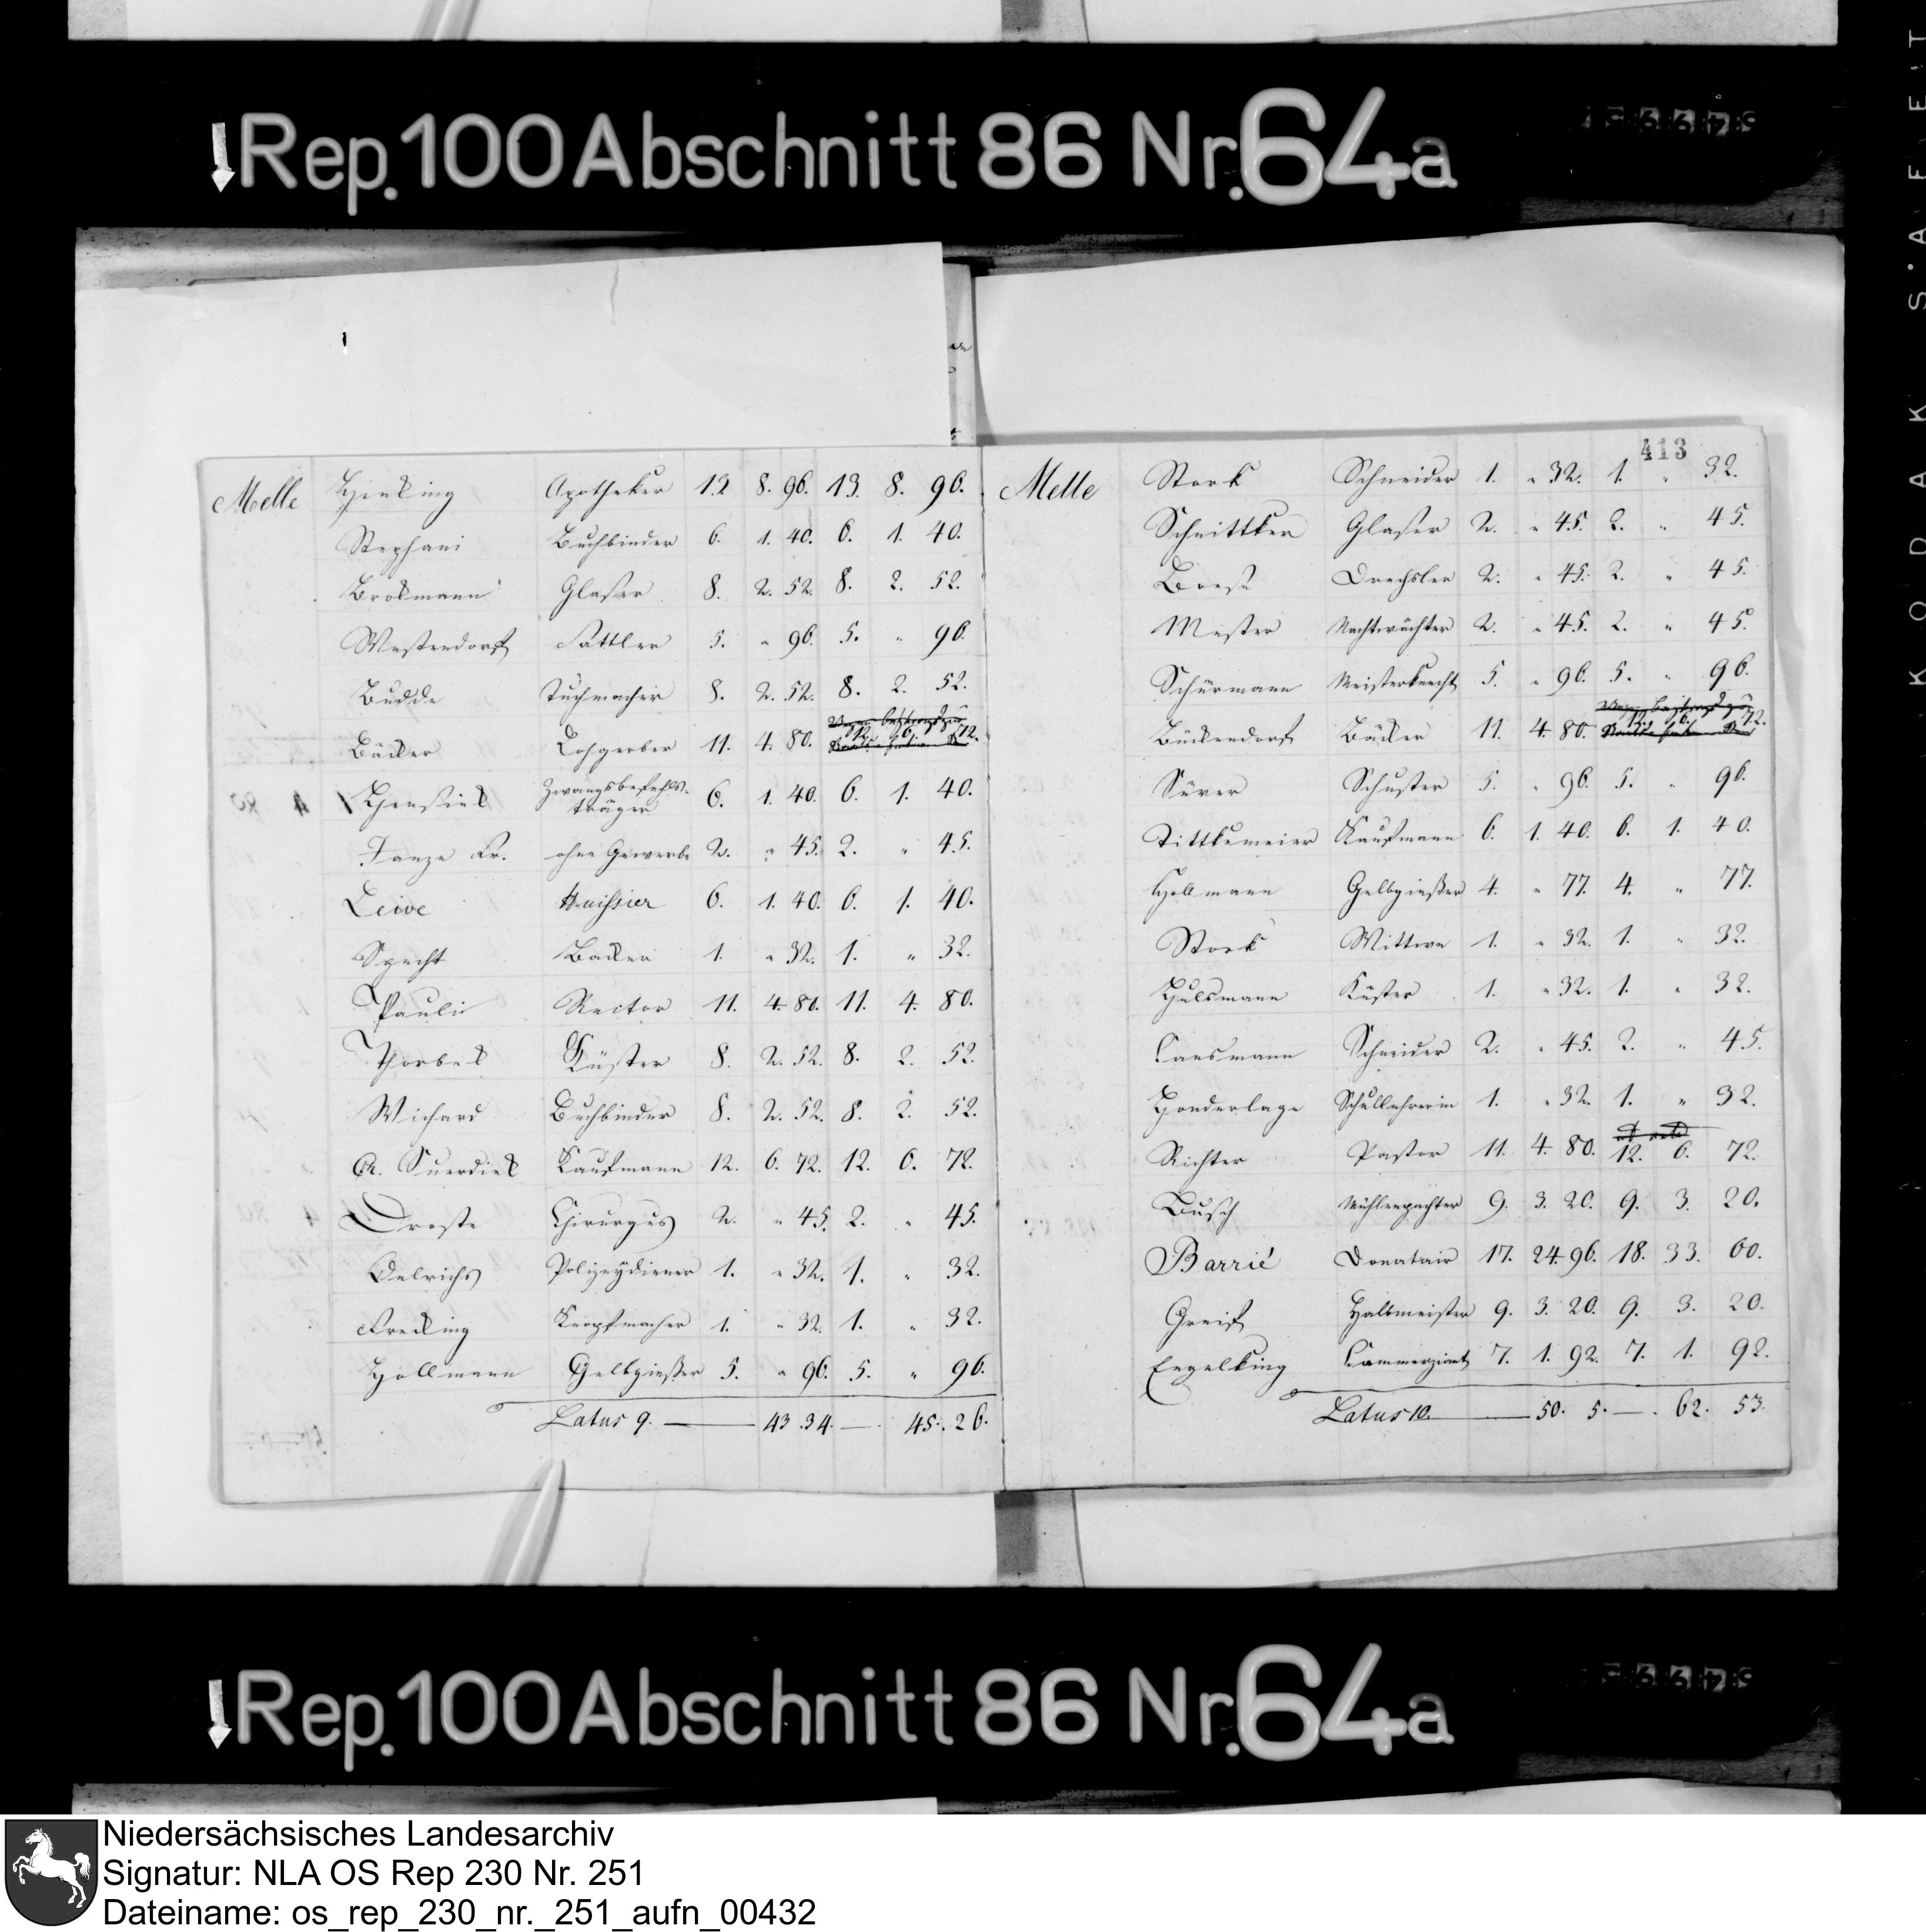 Rep. 100 Abschnitt 86 Nr. 64a
KODAK S'AFETY
413
Melle Henking Apotheker 12 8. 96. 13. 8. 96.
Stephani Buchbinder 6. 1. 40. 6. 1. 40.
Brokmann Glaser 8. 2. 52. 8. 2. 52.
Westendorf Sattler 5. " 96. 5. " 96.
Budde Tuchmacher 8. 2. 52. 8. 2. 52.
Bäcker Lohgerber 11. 4. 80. 12. 6. 72.
Hensieck Zwangsbefehls-
träger 6. 1. 40. 6. 1. 40.
Janze Fr. ohne Gewerbe 2. " 45. 2. " 45.
Leive Huissier 6. 1. 40. 6. 1. 40.
Specht Backer 1. " 32. 1. " 32.
Pauli Rector 11. 4. 80. 11. 4. 80.
Thorbeck Küster 8. 2. 52. 8. 2. 52.
Wichard Buchbinder 8. 2. 52. 8. 2. 52.
Suerdieck Kaufmann 12. 6. 72. 12. 6. 72.
Droste Chirurgus 2. " 45. 2. " 45.
Oelrichs Polizeydiener 1. " 32. 1. " 32.
Frecking Knopfmacher 1. " 32. 1. " 32.
Hollmann Gelbgießer 5. " 96. 5. " 96.
Latus 9. — 43. 34. — 45. 26.
Melle Stork Schneider 1. " 32. 1. " 32.
Schnittker Glaser 2. " 45. 2. " 45.
Boese Drechsler 2. " 45. 2. " 45.
Mester Nachtwächter 2. " 45. 2. " 45.
Schürmann Meisterknecht 5. " 96. 5. " 96.
Bückendorf Bäcker 11. 4. 80. 12. 6. 72.
Süver Schuster 5. " 96. 5. " 96.
Tittkemeier Kaufmann 6. 1. 40. 6. 1. 40.
Hollmann Gelbgießer 4. " 77. 4. " 77.
Stork Wittwe 1. " 32. 1. " 32.
Hulsmann Küster 1. " 32. 1. " 32.
Cansmann Schneider 2. " 45. 2. " 45.
Honderlage Schullehrerin 1. " 32. 1. " 32.
Richter Pastor 11. 4. 80. 12. 6. 72.
Busch Mühlenpachter 9. 3. 20. 9. 3. 20.
Barrié Donatair 17. 24. 96. 18. 33. 60.
Greif Halbmeister 9. 3. 20. 9. 3. 20.
Engelking Commerziant 7. 1. 92. 7. 1. 92.
Latus 10. — 50. 5. — 62. 53.
Rep. 100 Abschnitt 86 Nr. 64a
Niedersächsisches Landesarchiv
Signatur: NLA OS Rep 230 Nr. 251
Dateiname: os_rep_230_nr._251_aufn_00432